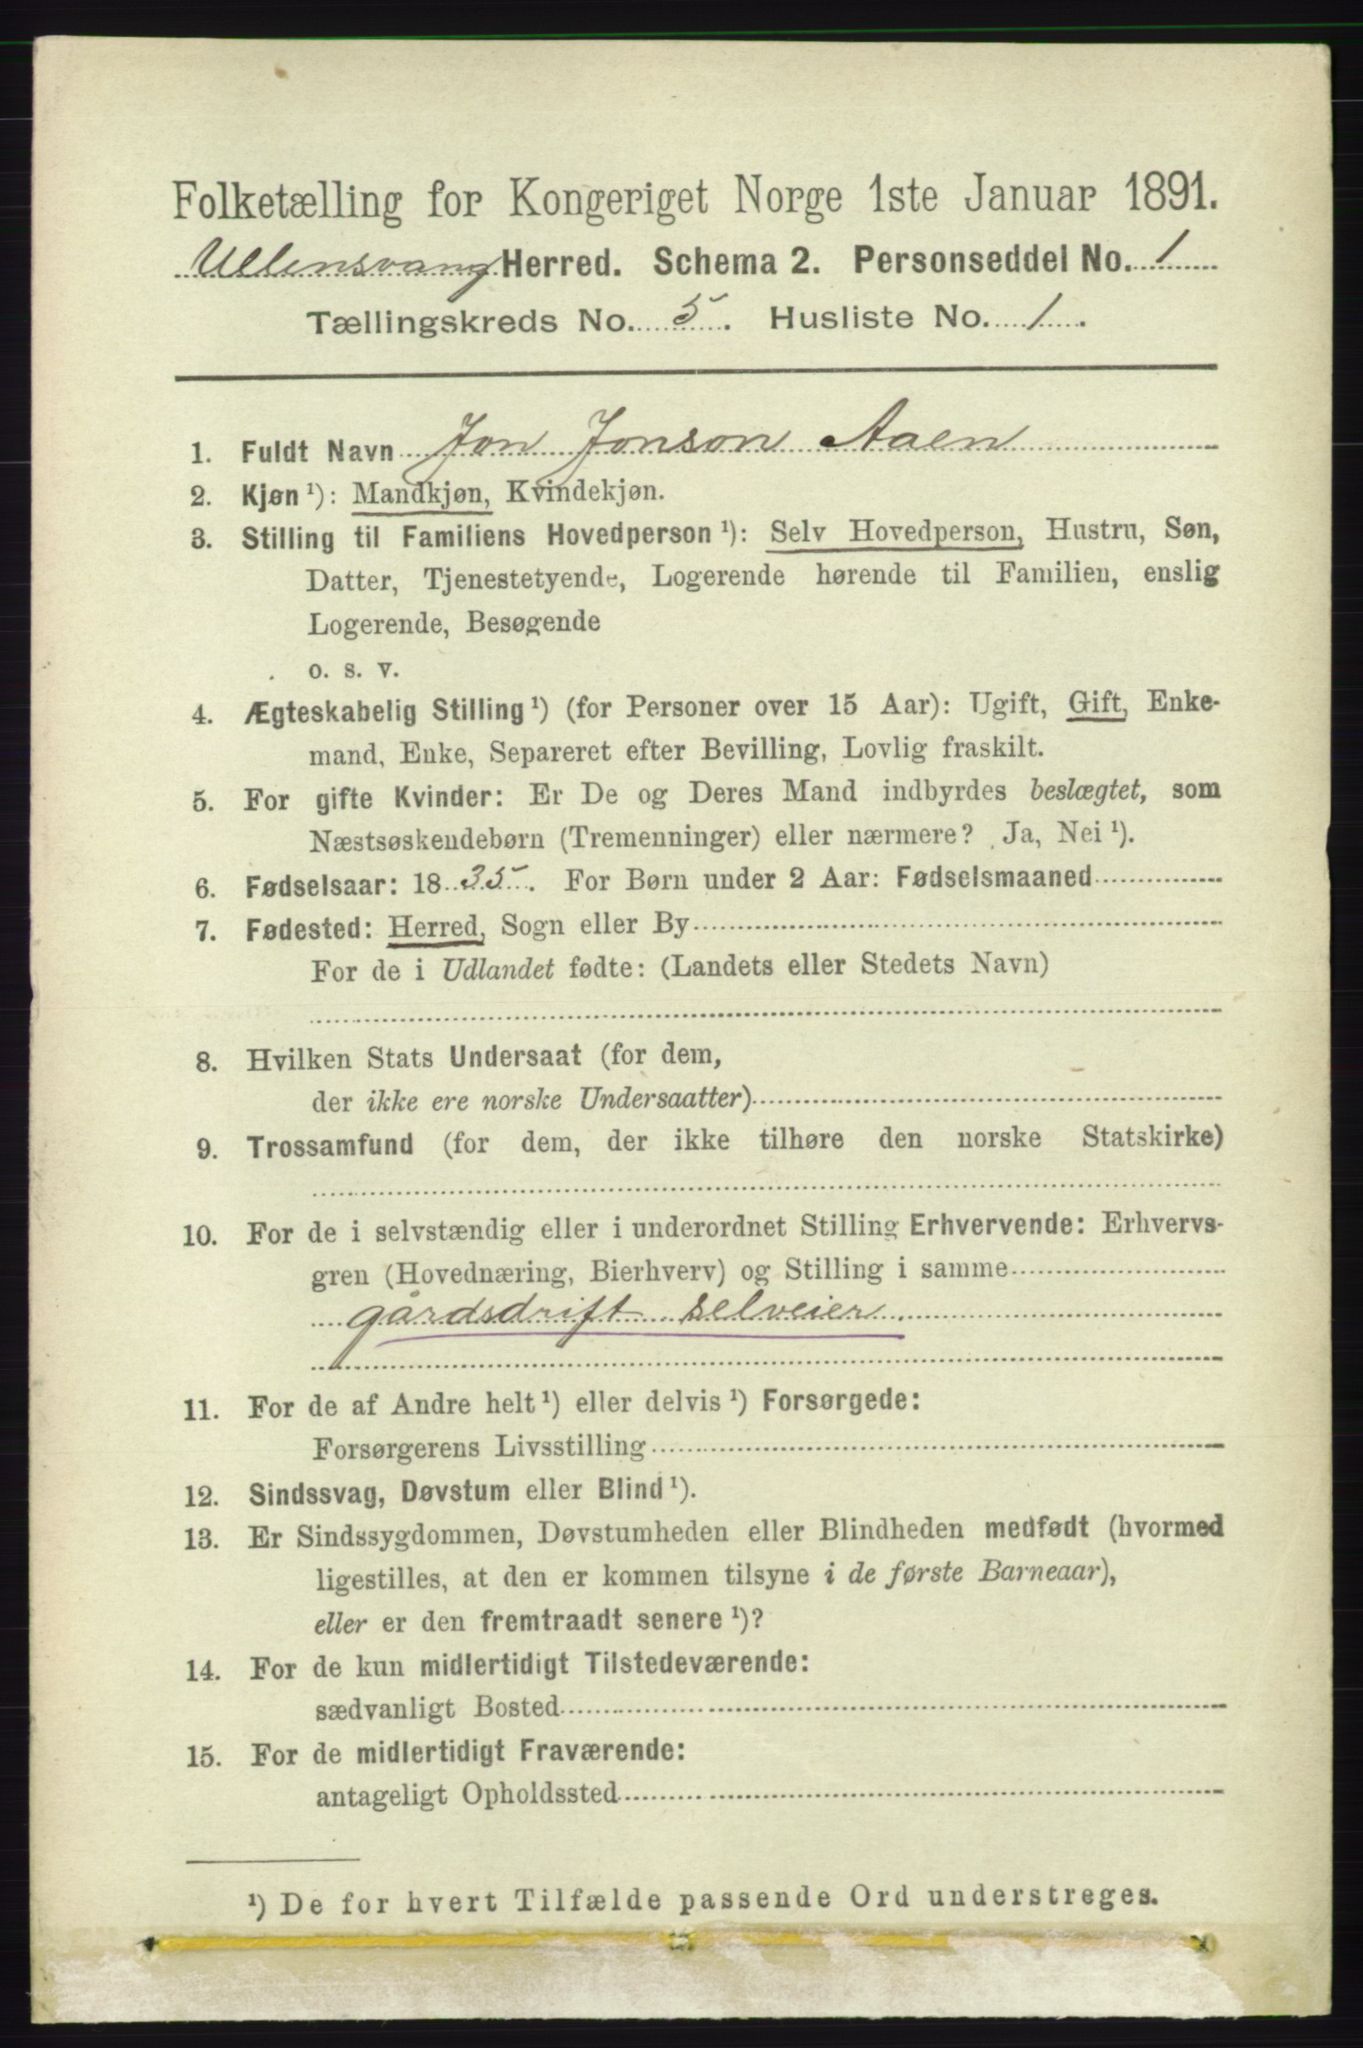 Folketælling for Kongeriget Norge 1ste Januar 1891.
Ullensvang Herred. Schema 2. Personseddel No. 1
Tællingskreds No. 5. Husliste No. 1.
1. Fuldt Navn Jon Jonson Aaen
2. Kjøn ¹): Mandkjøn, Kvindekjøn.
3. Stilling til Familiens Hovedperson ¹): Selv Hovedperson, Hustru, Søn,
Datter, Tjenestetyende, Logerende hørende til Familien, enslig
Logerende, Besøgende
o. s. v.
4. Ægteskabelig Stilling ¹) (for Personer over 15 Aar): Ugift, Gift, Enke-
mand, Enke, Separeret efter Bevilling, Lovlig fraskilt.
5. For gifte Kvinder: Er De og Deres Mand indbyrdes beslægtet, som
Næstsøskendebørn (Tremenninger) eller nærmere? Ja, Nei ¹).
6. Fødselsaar: 1835. For Børn under 2 Aar: Fødselsmaaned
7. Fødested: Herred, Sogn eller By
For de i Udlandet fødte: (Landets eller Stedets Navn)
8. Hvilken Stats Undersaat (for dem,
der ikke ere norske Undersaatter)
9. Trossamfund (for dem, der ikke tilhøre den norske Statskirke)
10. For de i selvstændig eller i underordnet Stilling Erhvervende: Erhvervs-
gren (Hovednæring, Bierhverv) og Stilling i samme
gårdsdrift selveier.
11. For de af Andre helt ¹) eller delvis ¹) Forsørgede:
Forsørgerens Livsstilling
12. Sindssvag, Døvstum eller Blind ¹).
13. Er Sindssygdommen, Døvstumheden eller Blindheden medfødt (hvormed
ligestilles, at den er kommen tilsyne i de første Barneaar),
eller er den fremtraadt senere ¹)?
14. For de kun midlertidigt Tilstedeværende:
sædvanligt Bosted
15. For de midlertidigt Fraværende:
antageligt Opholdssted
¹) De for hvert Tilfælde passende Ord understreges.